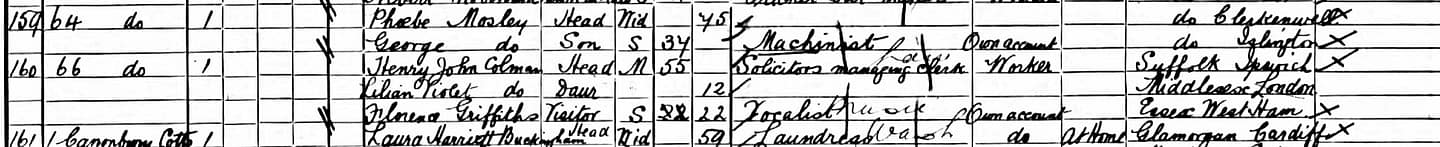 159 64 do 1 Phoebe Mosley Head Wid 75 do Clerkenwell
George do Son S 34 Machinist Own account do Islington
160 66 do 1 Henry John Colman Head M 55 Solicitors managing Clerk Worker Suffolk Ipswich
Lilian Violet do Daur 12 Middlesex London
Florence Griffiths Visitor S 22 22 Vocalist Music Own account Essex West Ham
161 1 Canonbury Cotts 1 Laura Harriett Buckingham Head Wid 59 Laundress Wash do At Home Glamorgan Cardiff